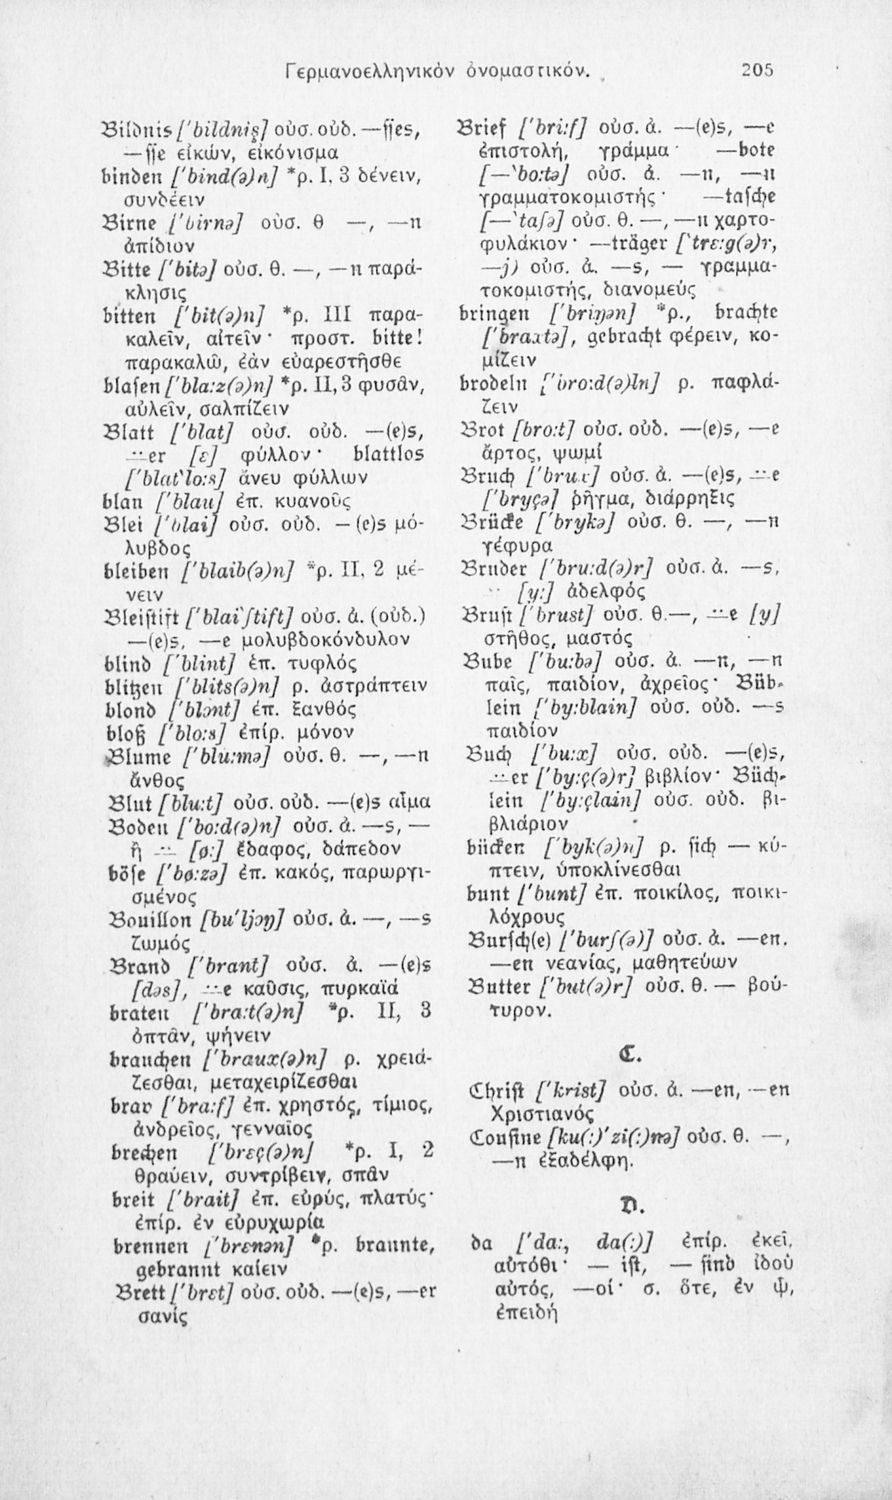 Γερμανοελληνικὸν ὀνομαστικόν.
205
Bildnis ['bildniş] οὐσ. οὐδ. —ſſes,
—ſſe εἰκών, εἰκόνισμα
binden ['bind(ə)n] *ρ. I, 3 δένειν,
συνδέειν
Birne ['birnə] οὐσ. θ —, —n
ἀπίδιον
Bitte ['bitə] οὐσ. θ. —, —n παρά-
κλησις
bitten ['bit(ə)n] *ρ. III παρα-
καλεῖν, αἰτεῖν· προστ. bitte!
παρακαλῶ, ἐὰν εὐαρεστῆσθε
blaſen ['bla:z(ə)n] *ρ. II, 3 φυσᾶν,
αὐλεῖν, σαλπίζειν
Blatt ['blat] οὐσ. οὐδ. —(e)s,
—̈er [ɛ] φύλλον· blattlos
['blat'lo:s] ἄνευ φύλλων
blau ['blau] ἐπ. κυανοῦς
Blei ['blai] οὐσ. οὐδ. —(e)s μό-
λυβδος
bleiben ['blaib(ə)n] *ρ. II, 2 μέ-
νειν
Bleiſtift ['blai'ʃtift] οὐσ. ἀ. (οὐδ.)
—(e)s, —e μολυβδοκόνδυλον
blind ['blint] ἐπ. τυφλός
blitzen ['blits(ə)n] ρ. ἀστράπτειν
blond ['blɔnt] ἐπ. ξανθός
bloß ['blo:s] ἐπίρ. μόνον
Blume ['blu:mə] οὐσ. θ. —, —n
ἄνθος
Blut [blu:t] οὐσ. οὐδ. —(e)s αἷμα
Boden ['bo:d(ə)n] οὐσ. ἀ. —s, —
ἢ —̈ [ø:] ἔδαφος, δάπεδον
böſe ['bø:zə] ἐπ. κακός, παρωργι-
σμένος
Bouillon [bu'ljɔŋ] οὐσ. ἀ. —, —s
ζωμός
Brand ['brant] οὐσ. ἀ. —(e)s
[dəs], —̈e καῦσις, πυρκαϊά
braten ['bra:t(ə)n] *ρ. II, 3
ὀπτᾶν, ψήνειν
brauchen ['braux(ə)n] ρ. χρειά-
ζεσθαι, μεταχειρίζεσθαι
brav ['bra:f] ἐπ. χρηστός, τίμιος,
ἀνδρεῖος, γενναῖος
brechen ['breç(ə)n] *ρ. I, 2
θραύειν, συντρίβειν, σπᾶν
breit ['brait] ἐπ. εὐρύς, πλατύς·
ἐπίρ. ἐν εὐρυχωρίᾳ
brennen ['brɛnən] *ρ. brannte,
gebrannt καίειν
Brett ['brɛt] οὐσ. οὐδ. —(e)s, —er
σανίς
Brief ['bri:f] οὐσ. ἀ. —(e)s, —e
ἐπιστολή, γράμμα· —bote
[—'bo:tə] οὐσ. ἀ. —n, —n
γραμματοκομιστής· —taſche
[—'taʃə] οὐσ. θ. —, —n χαρτο-
φυλάκιον· —träger ['trɛ:g(ə)r,
—j) οὐσ. ἀ. —s, — γραμμα-
τοκομιστής, διανομεύς
bringen ['briŋən] *ρ., brachte
['braxtə], gebracht φέρειν, κο-
μίζειν
brodeln ['bro:d(ə)ln] ρ. παφλά-
ζειν
Brot [bro:t] οὐσ. οὐδ. —(e)s, —e
ἄρτος, ψωμί
Bruch ['brux] οὐσ. ἀ. —(e)s, —̈e
['bryçə] ῥῆγμα, διάρρηξις
Brücke ['brykə] οὐσ. θ. —, —n
γέφυρα
Bruder ['bru:d(ə)r] οὐσ. ἀ. —s,
—̈ [y:] ἀδελφός
Bruſt ['brust] οὐσ. θ.—, —̈e [y]
στῆθος, μαστός
Bube ['bu:bə] οὐσ. ἀ. —n, —n
παῖς, παιδίον, ἀχρεῖος· Büb-
lein ['by:blain] οὐσ. οὐδ. —s
παιδίον
Buch ['bu:x] οὐσ. οὐδ. —(e)s,
—̈er ['by:ç(ə)r] βιβλίον· Büch-
lein ['by:çlain] οὐσ. οὐδ. βι-
βλιάριον
bücken ['byk(ə)n] ρ. ſich — κύ-
πτειν, ὑποκλίνεσθαι
bunt ['bunt] ἐπ. ποικίλος, ποικι-
λόχρους
Burſch(e) ['burʃ(ə)] οὐσ. ἀ. —en,
—en νεανίας, μαθητεύων
Butter ['but(ə)r] οὐσ. θ. — βού-
τυρον.
C.
Chriſt ['krist] οὐσ. ἀ. —en, —en
Χριστιανός
Couſine [ku(:)'zi(:)nə] οὐσ. θ. —,
—n ἐξαδέλφη.
D.
da ['da:, da(:)] ἐπίρ. ἐκεῖ,
αὐτόθι· — iſt, — ſind ἰδοὺ
αὐτός, —οί· σ. ὅτε, ἐν ᾧ,
ἐπειδή